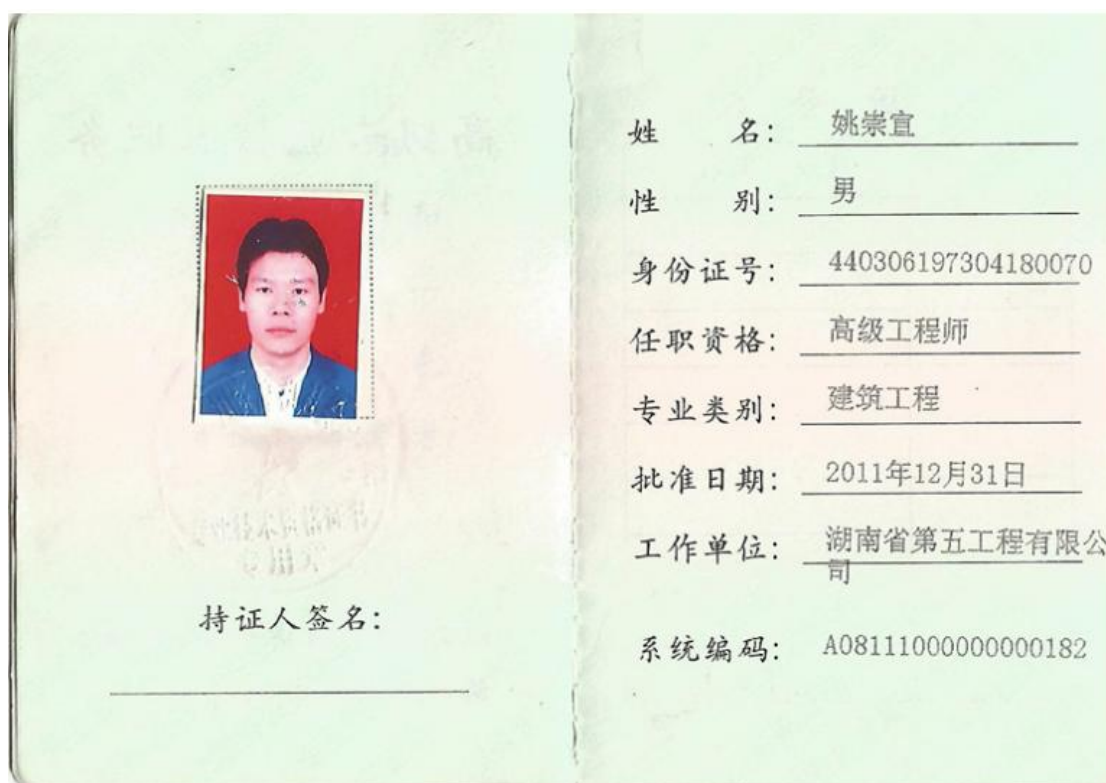 持证人签名：
姓 名： 姚崇宣
性 别： 男
身份证号： 440306197304180070
任职资格： 高级工程师
专业类别： 建筑工程
批准日期： 2011年12月31日
工作单位： 湖南省第五工程有限公
司
系统编码： A08111000000000182